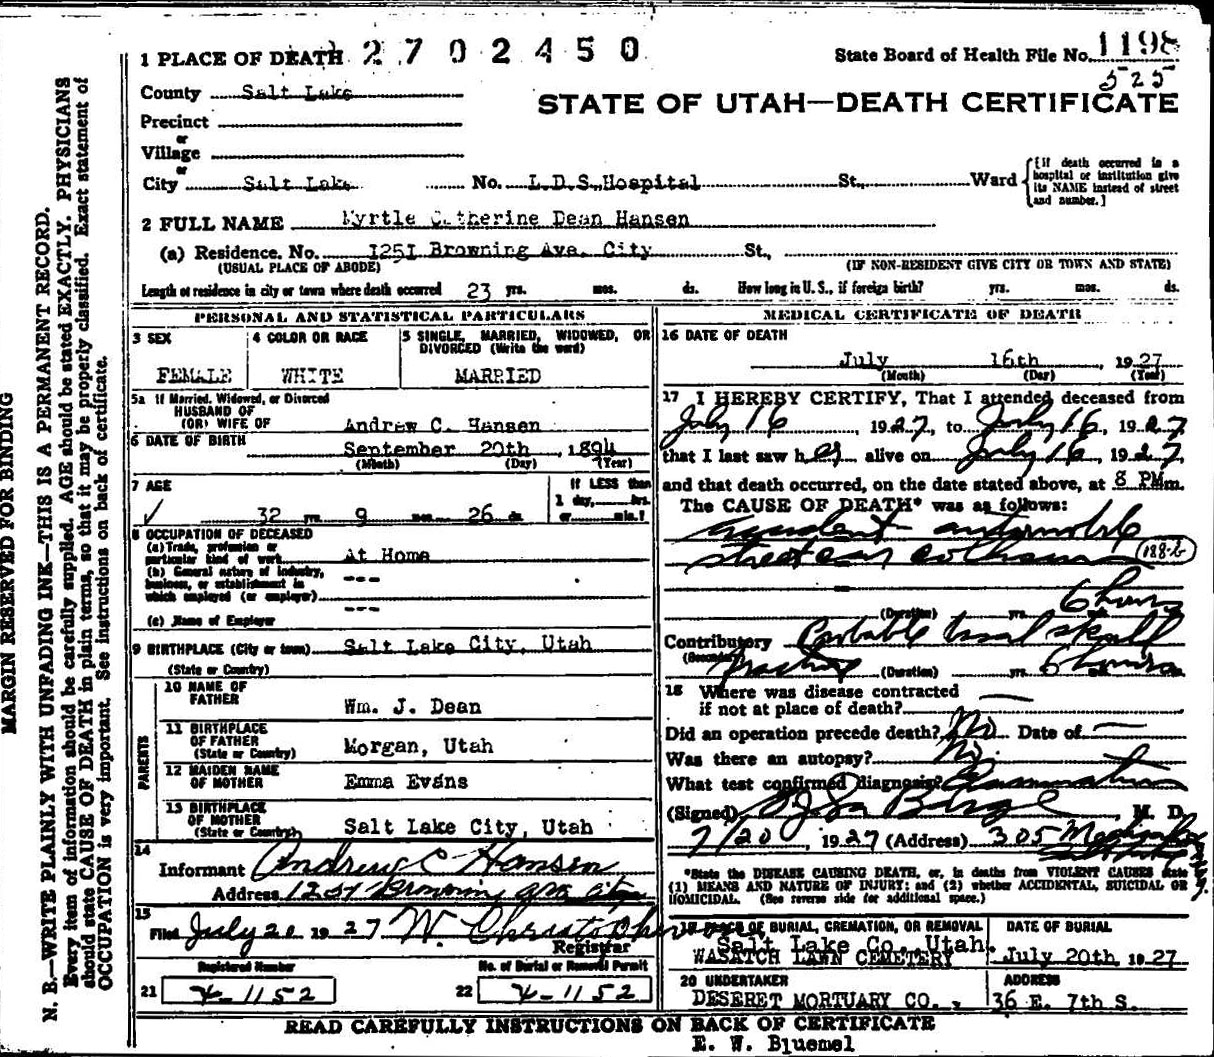 1 PLACE OF DEATH 2 7 0 2 4 5 0
State Board of Health File No. 1198
525
County Salt Lake
STATE OF UTAH—DEATH CERTIFICATE
Precinct
or
Village
or
City Salt Lake No. L.D.S. Hospital St., Ward
[If death occurred in a hospital or institution give its NAME instead of street and number.]
2 FULL NAME Myrtle Catherine Dean Hansen
(a) Residence. No. 1251 Browning Ave. City St.,
(USUAL PLACE OF ABODE) (IF NON-RESIDENT GIVE CITY OR TOWN AND STATE)
Length of residence in city or town where death occurred 23 yrs. mos. ds. How long in U. S., if foreign birth? yrs. mos. ds.
PERSONAL AND STATISTICAL PARTICULARS
3 SEX
FEMALE
4 COLOR OR RACE
WHITE
5 SINGLE, MARRIED, WIDOWED, OR DIVORCED (Write the word)
MARRIED
5a If Married, Widowed, or Divorced
HUSBAND OF
(OR) WIFE OF Andrew C. Hansen
6 DATE OF BIRTH September 20th, 1894
(Month) (Day) (Year)
7 AGE
✓ 32 yrs 9 mos. 26 ds.
If LESS than
1 day, hrs.
or min.?
8 OCCUPATION OF DECEASED
(a) Trade, profession or
particular kind of work At Home
(b) General nature of Industry,
business, or establishment in
which employed (or employer) ---
(c) Name of Employer ---
9 BIRTHPLACE (City or town) Salt Lake City, Utah
(State or Country)
PARENTS
10 NAME OF
FATHER Wm. J. Dean
11 BIRTHPLACE
OF FATHER
(State or Country) Morgan, Utah
12 MAIDEN NAME
OF MOTHER Emma Evans
13 BIRTHPLACE
OF MOTHER
(State or Country) Salt Lake City, Utah
14
Informant Andrew C Hansen
Address 1251 Browning Ave City
15
Filed July 20 1927 W. Christopherson
Registrar
Registered Number
21 X-1152
No. of Burial or Removal Permit
22 X-1152
MEDICAL CERTIFICATE OF DEATH
16 DATE OF DEATH
July 16th, 1927
(Month) (Day) (Year)
17 I HEREBY CERTIFY, That I attended deceased from
July 16, 1927, to July 16, 1927,
that I last saw her alive on July 16, 1927,
and that death occurred, on the date stated above, at 8 PM m.
The CAUSE OF DEATH* was as follows:
accident - automobile
street car collision 188-b
6 hours
(Duration) yrs.
Contributory Probable basal skull
(Secondary) fracture (Duration) yrs. 6 hours
18 Where was disease contracted
if not at place of death? —
Did an operation precede death? No Date of —
Was there an autopsy? No.
What test confirmed diagnosis? Examination
(Signed) M. D.
7/20, 1927 (Address) 305
*State the DISEASE CAUSING DEATH, or, in deaths from VIOLENT CAUSES state
(1) MEANS AND NATURE OF INJURY; and (2) whether ACCIDENTAL, SUICIDAL OR
HOMICIDAL. (See reverse side for additional space.)
19 PLACE OF BURIAL, CREMATION, OR REMOVAL
Salt Lake Co., Utah.
WASATCH LAWN CEMETERY
DATE OF BURIAL
July 20th, 1927
20 UNDERTAKER
DESERET MORTUARY CO.,
ADDRESS
36 E. 7th S.
READ CAREFULLY INSTRUCTIONS ON BACK OF CERTIFICATE
E. W. Bluemel
MARGIN RESERVED FOR BINDING
N. B.—WRITE PLAINLY WITH UNFADING INK—THIS IS A PERMANENT RECORD.
Every item of information should be carefully supplied. AGE should be stated EXACTLY. PHYSICIANS
should state CAUSE OF DEATH in plain terms, so that it may be properly classified. Exact statement of
OCCUPATION is very important. See instructions on back of certificate.